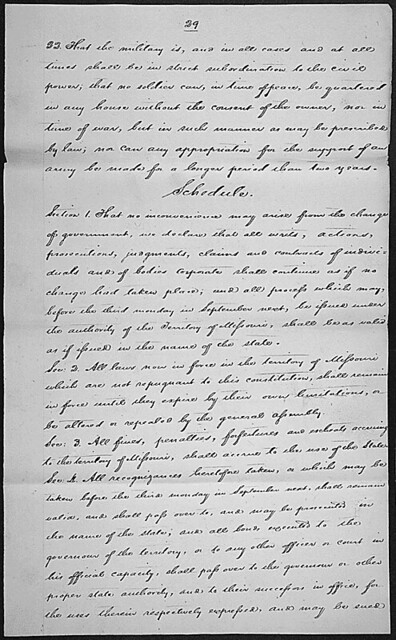 29
22. That the military is, and in all cases and at all
times shall be in strict subordination to the civil
power; that no soldier can, in time of peace, be quartered
in any house without the consent of the owner, nor in
time of war, but in such manner as may be prescribed
by law; nor can any appropriation for the support of an
army be made for a longer period than two years.
Schedule.
Section 1. That no inconvenience may arise from the change
of government, we declare that all writs, actions,
prosecutions, judgments, claims and contracts of indivi-
duals and of bodies corporate shall continue as if no
change had taken place; and all process which may,
before the third monday in September next, be issued under
the authority of the Territory of Missouri, shall be as valid
as if issued in the name of the state.
Sec: 2. All laws now in force in the territory of Missouri
which are not repugnant to this constitution, shall remain
in force until they expire by their own limitations, or
be altered or repealed by the general assembly.
Sec: 3. All fines, penalties, forfeitures and escheats accruing
to the territory of Missouri, shall accrue to the use of the State
Sec 4. All recognizances heretofore taken, or which may be
taken before the third monday in September next, shall remain
valid, and shall pass over to, and may be prosecuted in
the name of the state; and all bonds executed to the
governour of the territory, or to any other officer or court in
his official capacity, shall pass over to the governour or other
proper state authority, and to their successors in office, for
the uses therein respectively expressed, and may be sued